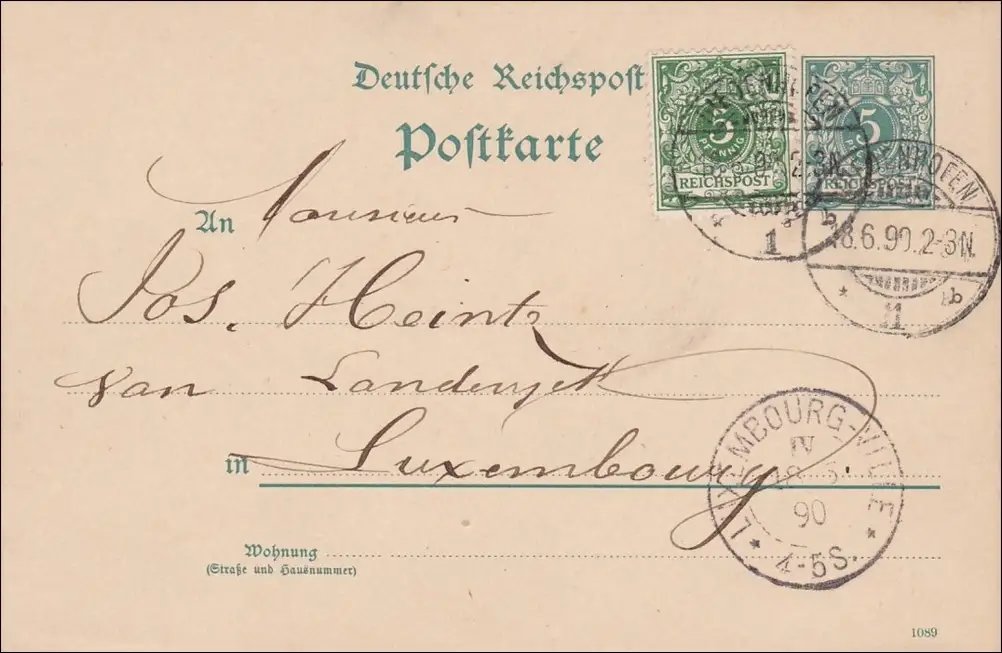 Deutsche Reichspost
Postkarte
5
PFENNIG
REICHSPOST
5
REICHSPOST
18.6.90.2-3N.
1
b
1
b
An Monsieur
Jos. Heintz
van Landewyck
in Luxembourg
LUXEMBOURG-VILLE
IV
90
4-5S.
Wohnung
(Straße und Hausnummer)
1089